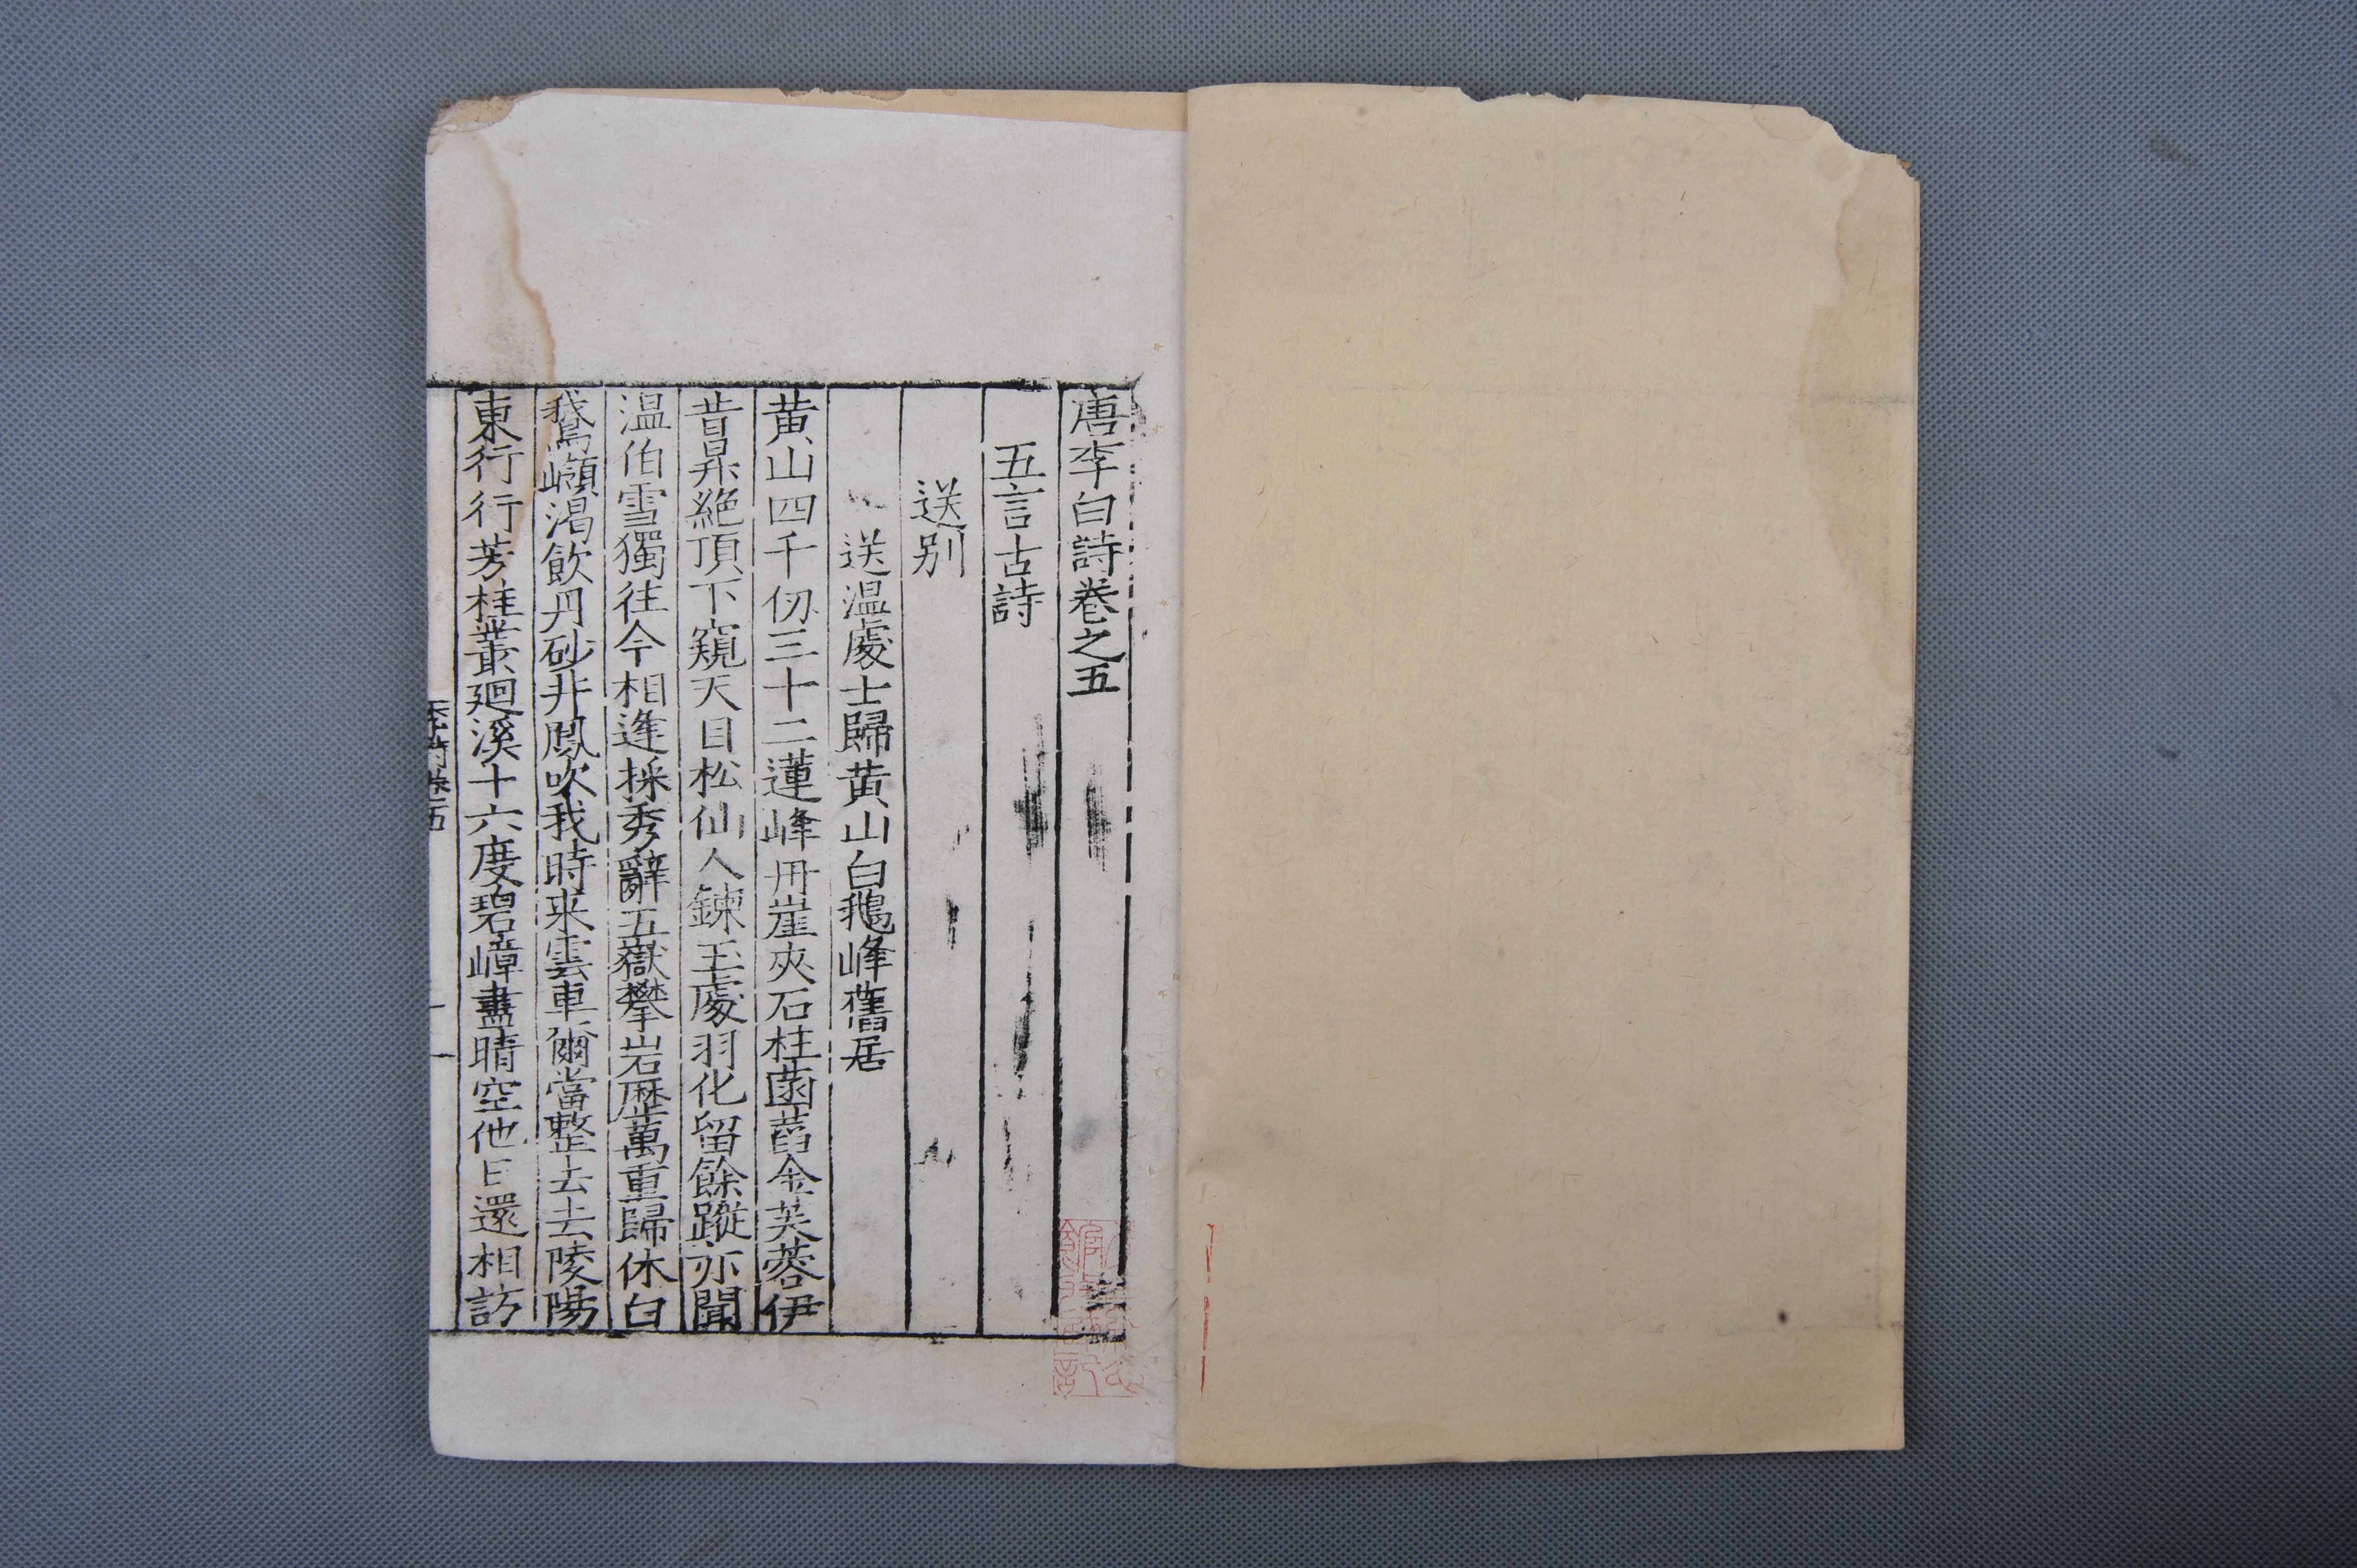 唐李白詩卷之五
五言古詩
送别
送温處士歸黄山白鵝峰舊居
黄山四千仞三十二蓮峰丹崖夾石柱菡萏金芙蓉伊
昔昇絶頂下窺天目松仙人鍊玉處羽化留餘蹤亦聞
温伯雪獨往今相逢採秀辭五嶽攀岩歷萬重歸休白
鵞嶺渴飲丹砂井鳳吹我時来雲車爾當整去去陵陽
東行行芳桂叢廻溪十六度碧嶂盡晴空他日還相訪